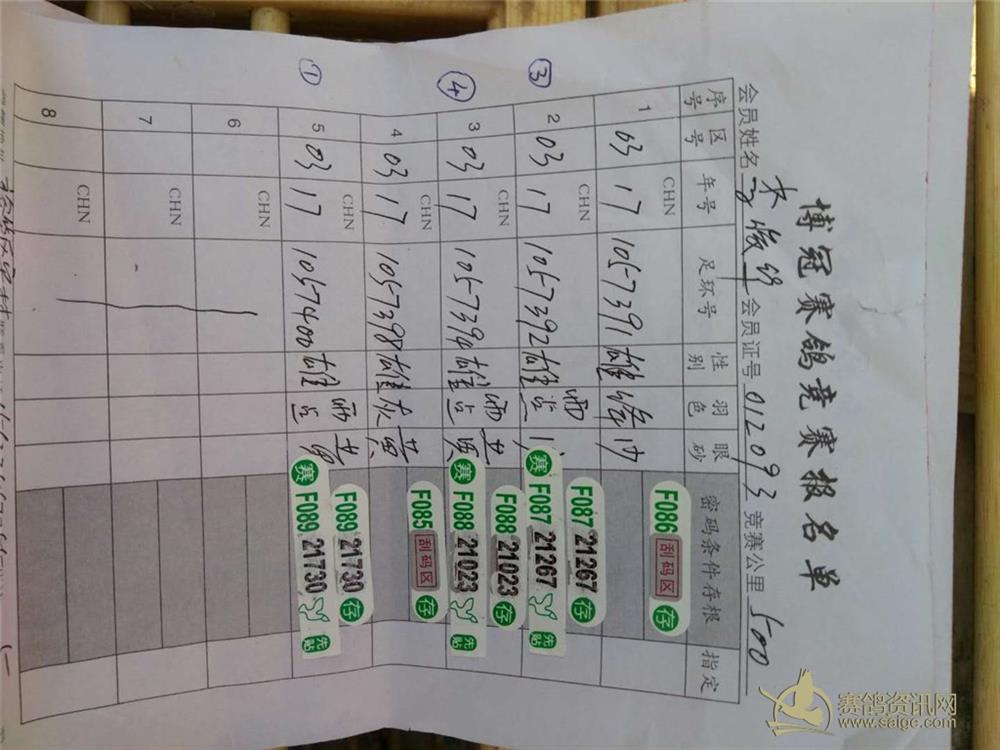 博冠赛鸽竞赛报名单
会员姓名 会员证号 012093 竞赛公里 500
序号 区号 年号 足环号 性别 羽色 眼砂 密码条件存根 指定
1 03 CHN 17 1057391 雄 绛 砂 F086 刮码区 存
③ 2 03 CHN 17 1057392 雄 雨点 F087 21267 存
赛 F087 21267 先贴
④ 3 03 CHN 17 1057394 雄 雨点 黄 F088 21023 存
赛 F088 21023 先贴
4 03 CHN 17 1057398 雄 灰 黄 F085 刮码区 存
① 5 03 CHN 17 1057400 雄 雨点 黄 F089 21730 存
赛 F089 21730 先贴
6 CHN
7 CHN
8 CHN
赛鸽资讯网
www.saigc.com